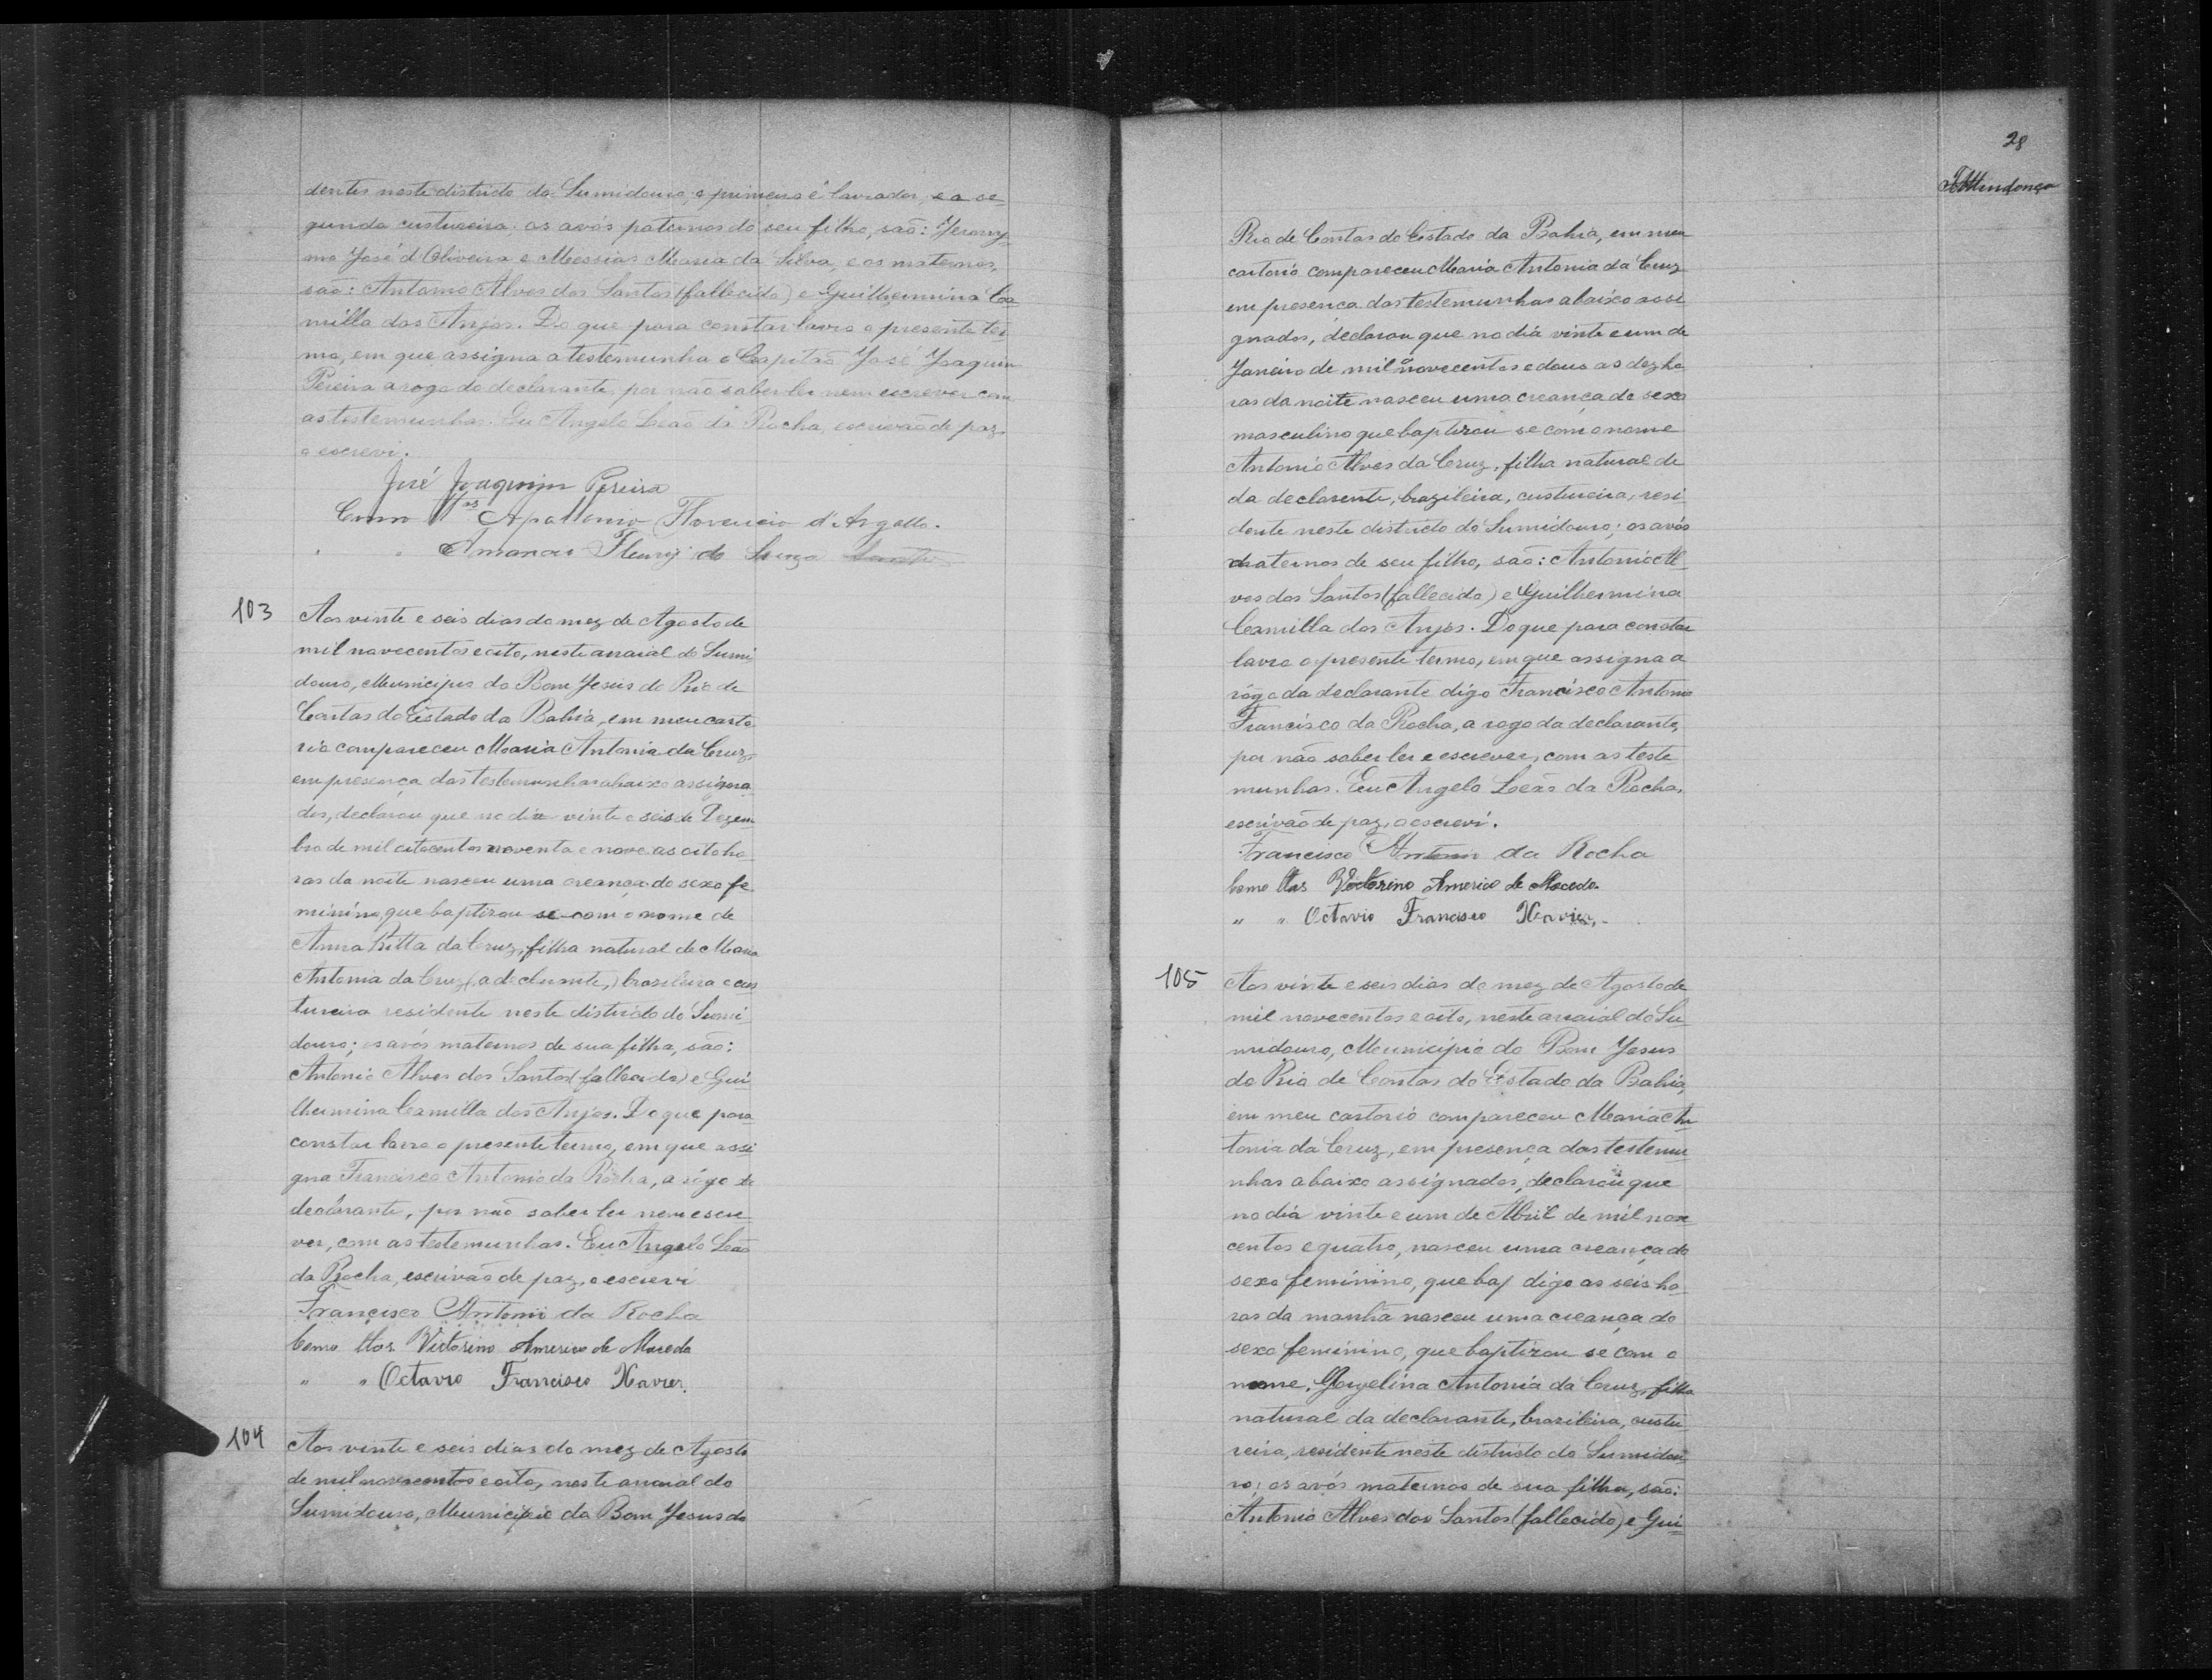 dentes neste districto do Sumidouro; o primeiro é lavrador, e a se-
gunda custureira; os avós paternos do seu filho, são: Jerony-
mo José d'Oliveira e Messias Maria da Silva, e os maternos,
são: Antonio Alves dos Santos (fallecido) e Guilhermina Ca
milla dos Anjos. Do que para constar lavro o presente ter-
mo, em que assigna a testemunha o Capitão José Joaquim
Pereira a rogo do declarante, por não saber ler nem escrever com
as testemunhas. Eu Angelo Leão da Rocha, escrivão de paz,
o escrevi.
José Joaquim Pereira
Como Ttas Apollonio Florencio d'Argollo.
" " Fleury de Souza
103
Aos vinte e seis dias do mez de Agosto de
mil novecentos e oito, neste arraial do Sumi
douro, Municipio do Bom Jesus do Rio de
Contas do Estado da Bahia, em meu carto
rio compareceu Maria Antonia da Cruz,
em presença das testemunhas abaixo assigna
dos, declarou que no dia vinte e seis de Dezem
bro de mil oitocentos noventa e nove as oito ho
ras da noite nasceu uma creança do sexo fe
minino, que baptizou se com o nome de
Anna Ritta da Cruz, filha natural de Maria
Antonia da Cruz (a declarante,) brasileira e cus
tureira residente neste districto do Sumi
douro; os avós maternos de sua filha, são:
Antonio Alves dos Santos (fallecido) e Gui
lhermina Camilla dos Anjos. Do que para
constar lavro o presente termo, em que assi
gna Francisco Antonio da Rocha, a rógo da
declarante, por não saber ler nem escre-
ver, com as testemunhas. Eu Angelo Leão
da Rocha, escrivão de paz, o escrevi
Francisco Antonio da Rocha
Como ttas Victorino Americo de Macedo
" " Octavio Francisco Xavier.
104
Aos vinte e seis dias do mez de Agosto
de mil novecentos e oito, neste arraial do
Sumidouro, Municipio do Bom Jesus do
28
Mendonça
Rio de Contas do Estado da Bahia, em meu
cartorio compareceu Maria Antonia da Cruz
em presença das testemunhas abaixo assi
gnados, declarou que no dia vinte e um de
Janeiro de mil novecentos e dous as dez ho
ras da noite nasceu uma creança do sexo
masculino que baptizou se com o nome
Antonio Alves da Cruz, filho natural de
da declarente, brazileira, custureira, resi
dente neste districto do Sumidouro; os avós
maternos de seu filho, são: Antonio Al
ves dos Santos (fallecido) e Guilhermina
Camilla dos Anjos. Do que para constar
lavro o presente termo, em que assigna a
rógo da declarante digo Francisco Antonio
Francisco da Rocha, a rogo da declarante,
por não saber ler e escrever, com as teste
munhas. Eu Angelo Leão da Rocha,
escrivão de paz, o escrevi.
Francisco Antonio da Rocha
Como ttas Victorino Americo de Macedo.
" " Octavio Francisco Xavier.
105
Aos vinte e seis dias do mez de Agosto de
mil novecentos e oito, neste arraial do Su
midouro, Municipio do Bom Jesus
do Rio de Contas do Estado da Bahia,
em meu cartorio compareceu Maria An
tonia da Cruz, em presença das testemu
nhas abaixo assignados, declarou que
no dia vinte e um de Abril de mil nove
centos e quatro, nasceu uma creança do
sexo feminino, que bap digo as seis ho
ras da manhã nasceu uma creança do
sexo feminino, que baptizou se com o
nome, Antonia da Cruz, filha
natural da declarante, brazileira, custu
reira, residente neste districto do Sumidou
ro; os avós maternos de sua filha, são:
Antonio Alves dos Santos (fallecido) e Gui-